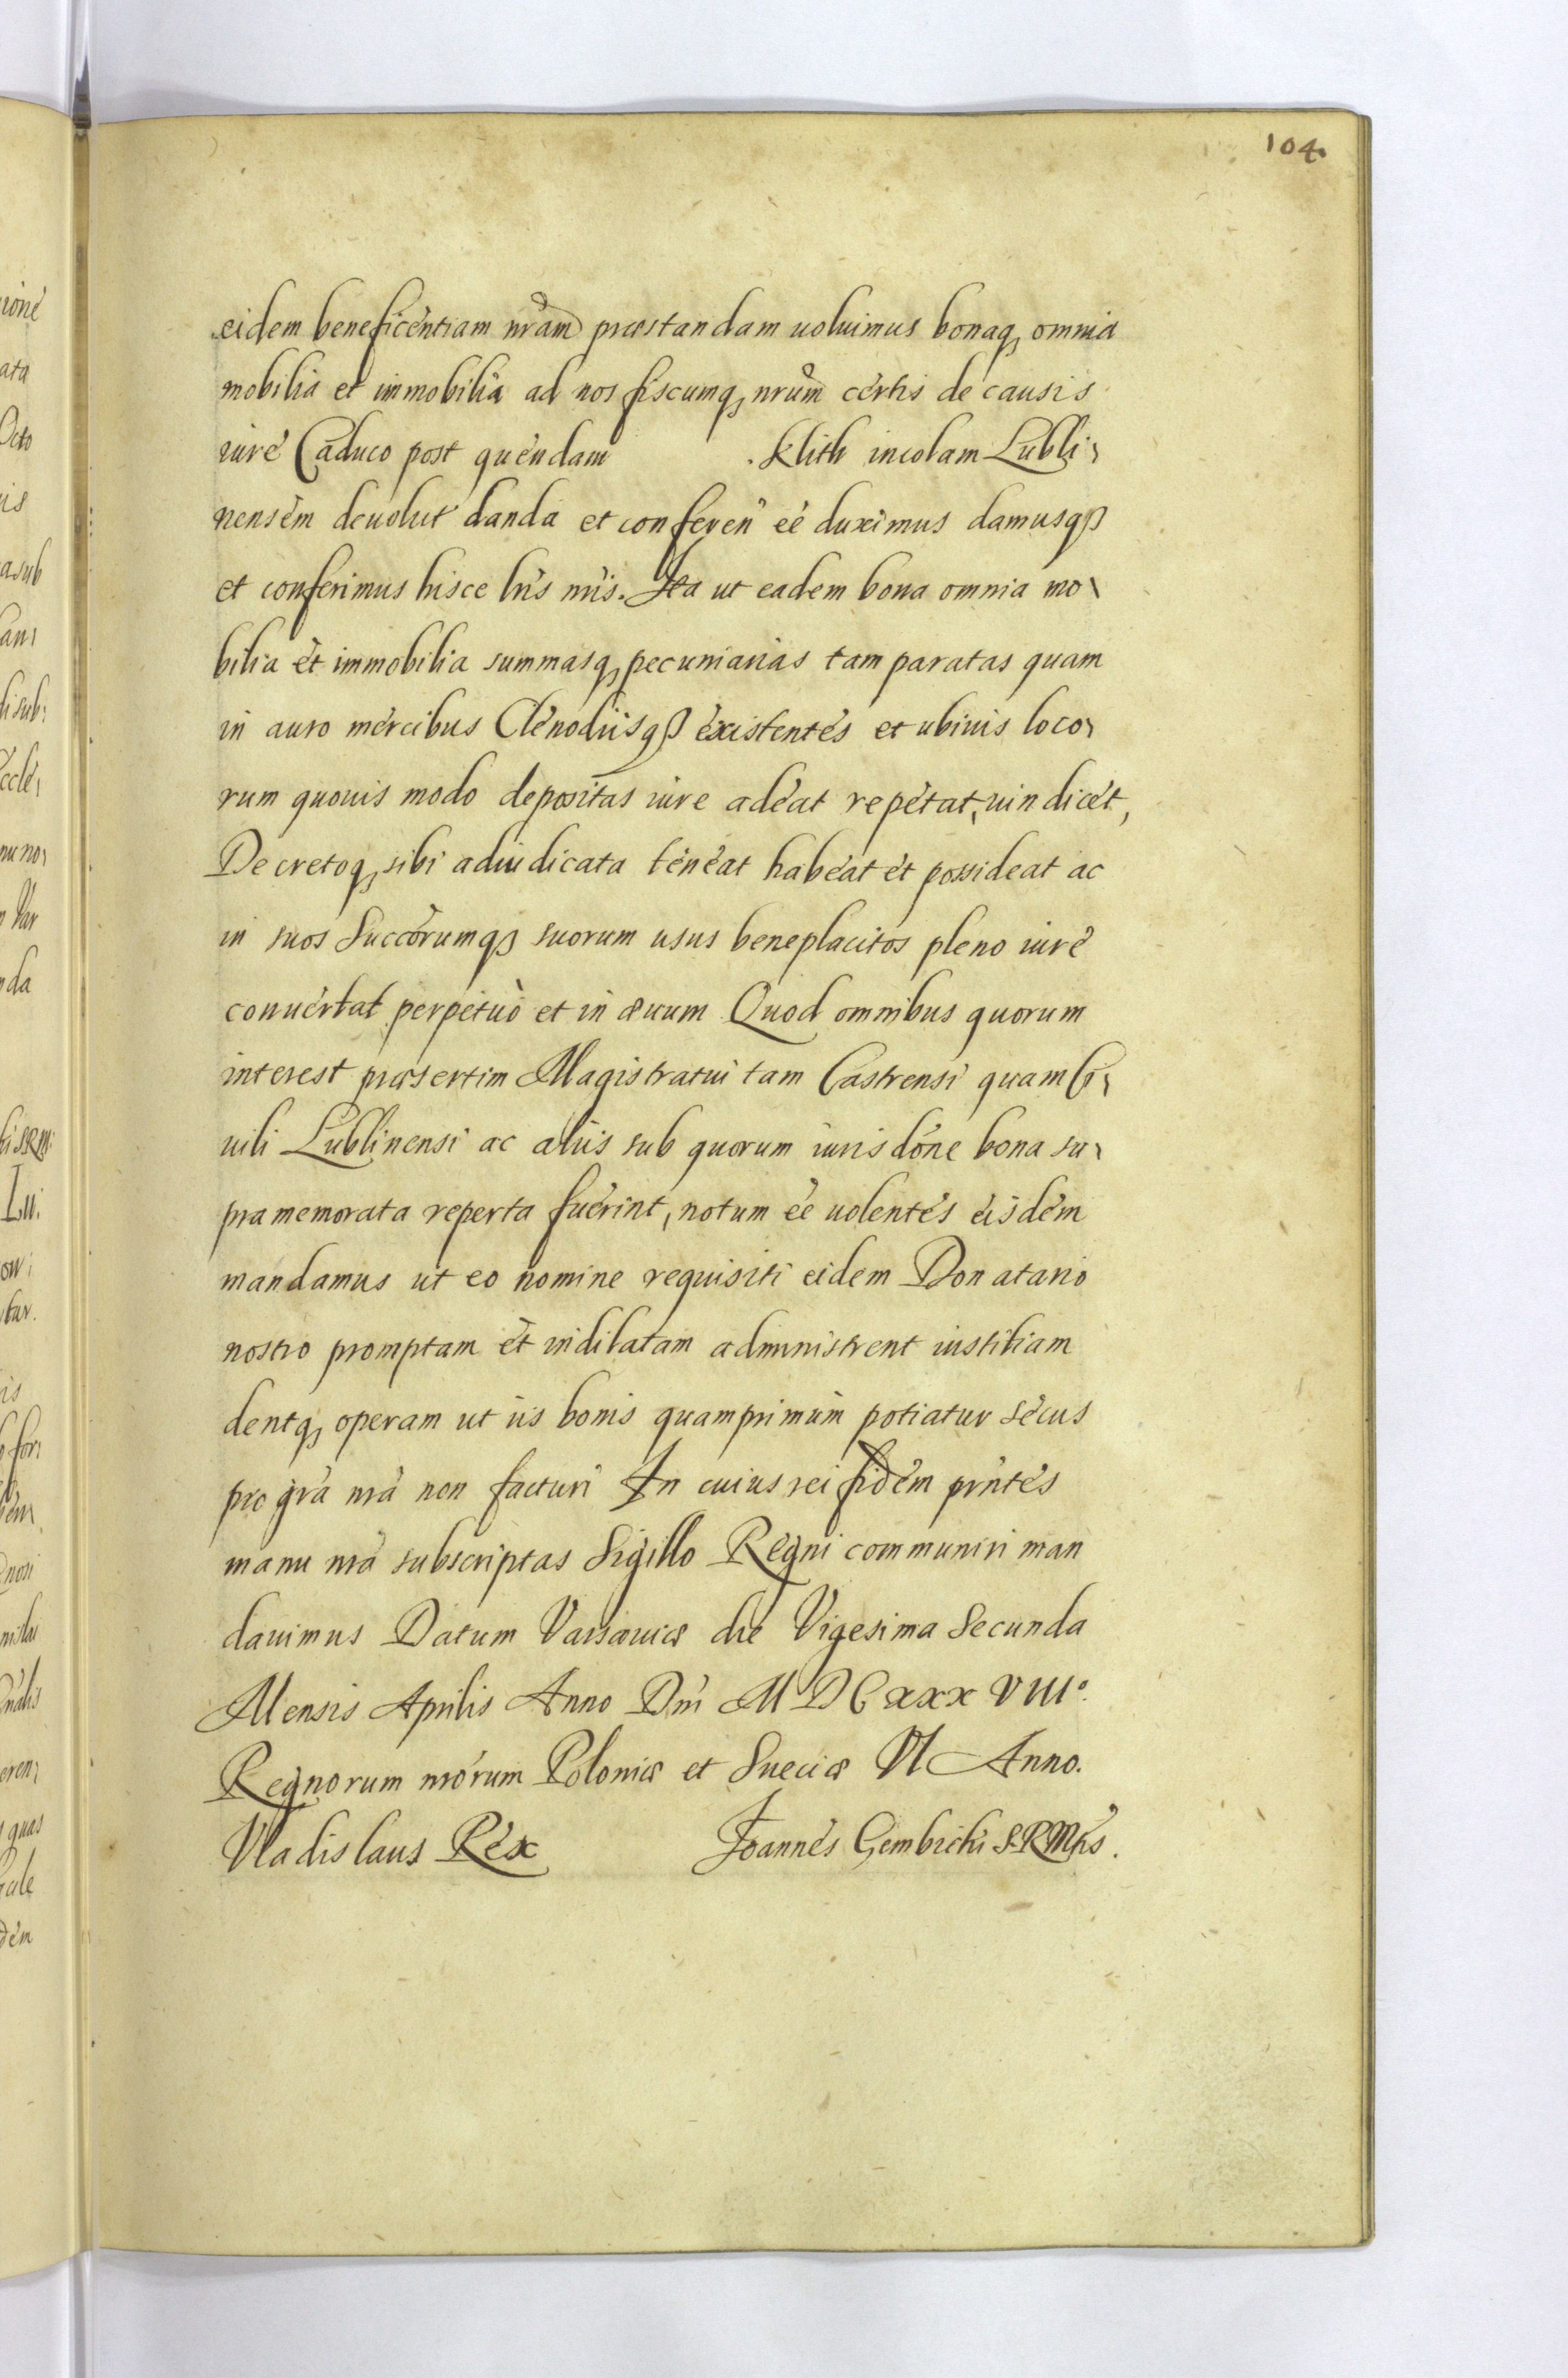 104.
eidem beneficentiam nr̃am præstandam uoluimus bonaq₃ omnia
mobilia et immobilia ad nos fiscumq₃ nrũm certis de causis
iure Caduco post quendam . Klith incolam Lubli-
nensem deuolut̃ danda et conferen̄ eẽ duximus damusqꝫ
et conferimus hisce lr̃is nr̃is. Ita ut eadem bona omnia mo-
bilia et immobilia summasq₃ pecuniarias tam paratas quam
in auro mercibus Clenodiisqꝫ existentes et ubiuis loco-
rum quouis modo depositas iure adeat repetat, uindicet,
Decretoq₃ sibi adiudicata teneat habeat et possideat ac
in suos Succõrumqꝫ suorum usus beneplacitos pleno iure
conuertat perpetuò et in æuum Quod omnibus quorum
interest præsertim Magistratui tam Castrensi quam Ci-
uili Lublinensi ac aliis sub quorum iurisdõne bona su-
pramemorata reperta fuerint, notum eẽ uolentes eisdem
mandamus ut eo nomine requisiti eidem Donatario
nostro promptam et indilatam administrent iustitiam
dentq₃ operam ut iis bonis quamprimum potiatur secus
pro gr̃a nr̃a non facturi In cuius rei fidem pr̃ntes
manu nr̃a subscriptas Sigillo Regni communiri man
dauimus Datum Varsauiæ die Vigesima Secunda
Mensis Aprilis Anno Dñi MDCxxxVIIIº.
Regnorum nr̃orum Poloniæ et Sueciæ VI Anno.
Vladislaus Rex Joannes Gembicki S.R.Mtis.